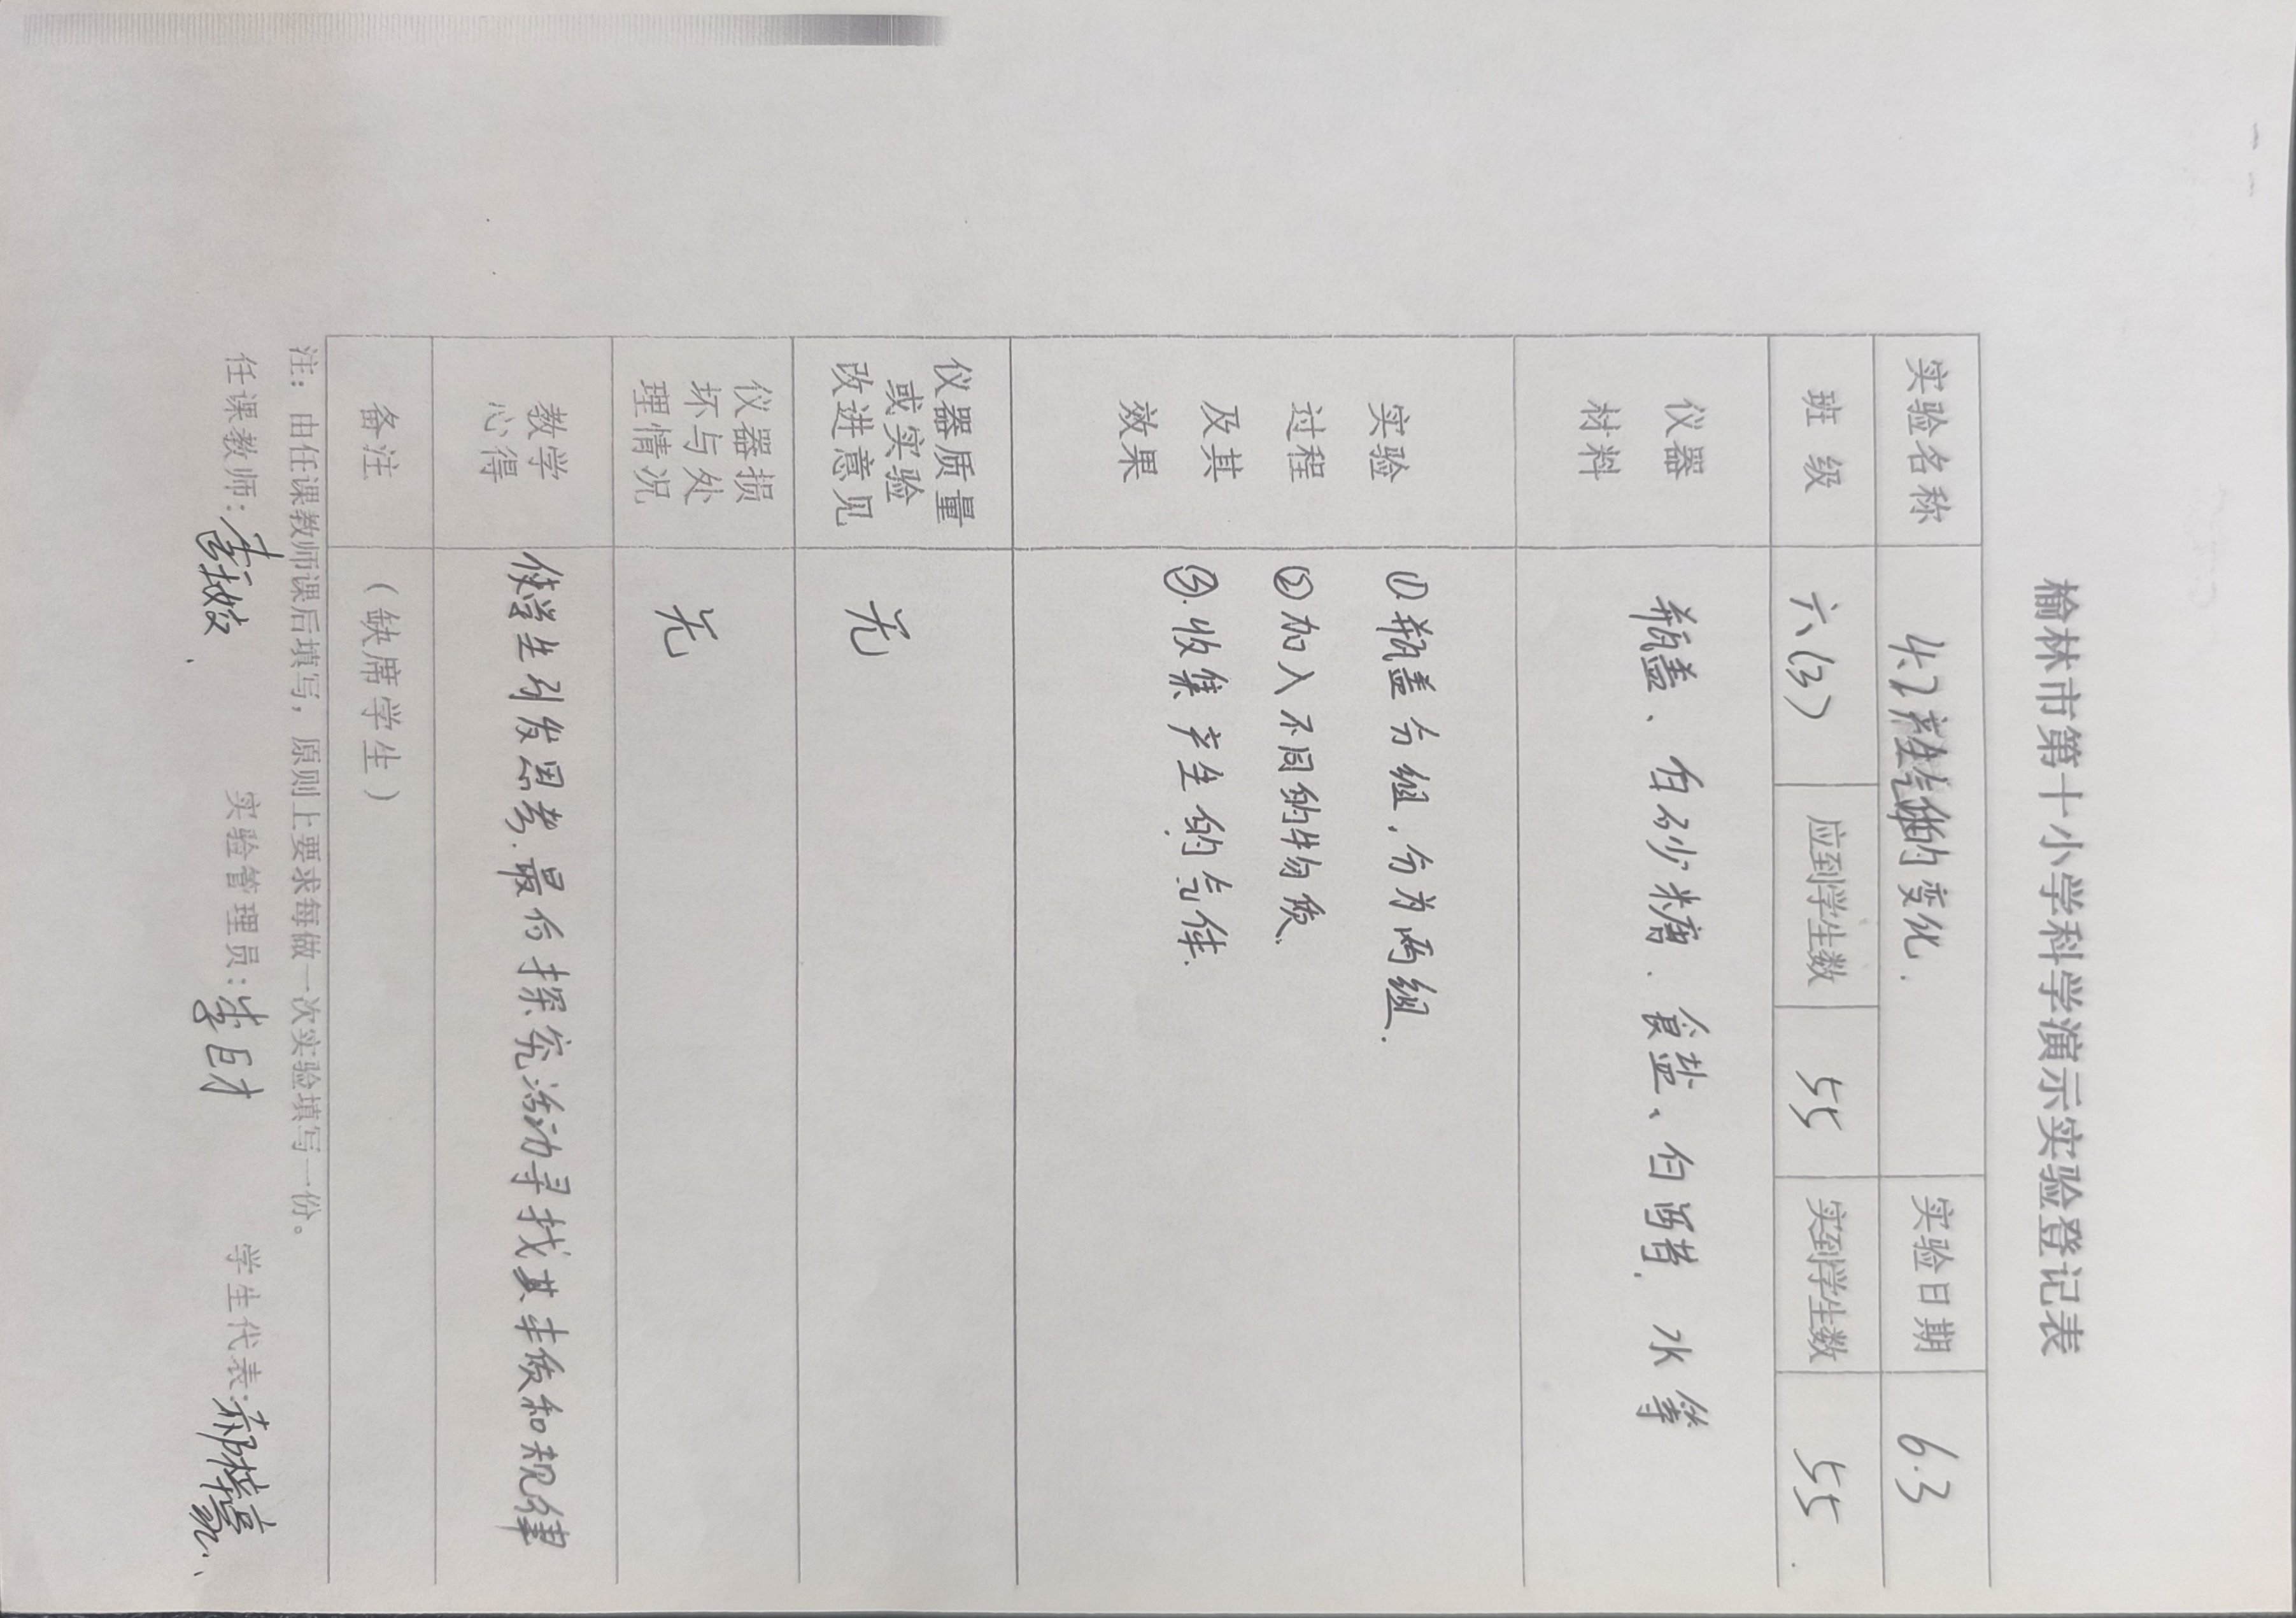 榆林市第十小学科学演示实验登记表
实验名称 4.2产生气体的变化. 实验日期 6.3
班级 六(3) 应到学生数 55 实到学生数 55.
仪器材料 瓶盖、白砂糖、食盐、白醋、水等
实验过程及其效果
①瓶盖分组,分为两组.
②加入不同的物质.
③.收集产生的气体.
仪器质量或实验改进意见 无
仪器损坏与处理情况 无
教学心得 使学生引发思考.最后探究活动寻找其本质和规律
备注 (缺席学生)
注:由任课教师课后填写,原则上要求每做一次实验填写一份。
任课教师: 实验管理员: 学生代表: